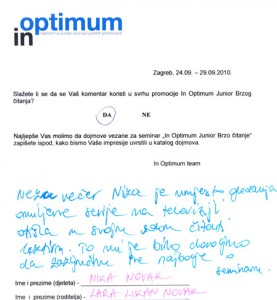 in optimum
Zagreb, 24.09. – 29.09.2010.
Slažete li se da se Vaš komentar koristi u svrhu promocije In Optimum Junior Brzog
čitanja?
DA NE
Najljepše Vas molimo da dojmove vezane za seminar „In Optimum Junior Brzo čitanje"
zapišete ispod, kako bismo Vaše impresije uvrstili u katalog dojmova.
In Optimum team
večer Nika je umjesto gledanja
omiljene serije na televiziji
otišla u svojim sobom čitati
To mi je bilo dovoljno
da zaključim sve najbolje o
seminaru.
Ime i prezime (djeteta) - NIKA NOVAK
Ime i prezime (roditelja) - LARA NOVAK